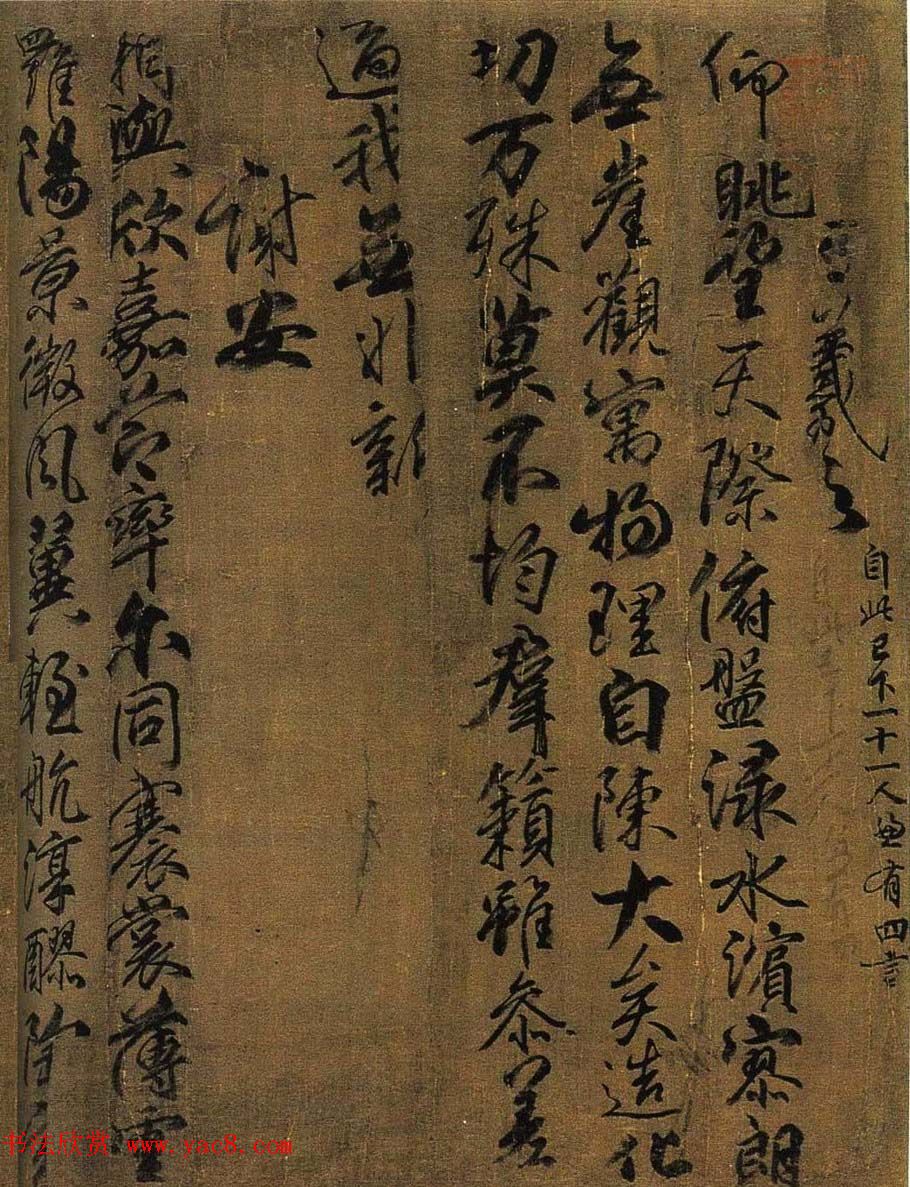 王羲之
自此已下一十一人並有四言
仰眺望天際俯盤淥水濱寥朗
無崖觀寓物理自陳大矣造化
切万殊莫不均羣籟雖參差
適我無非新
謝安
相與欣嘉節率尔同褰裳薄雲
羅陽景微風翼輕航淳醪陶
书法欣赏 www.yac8.com